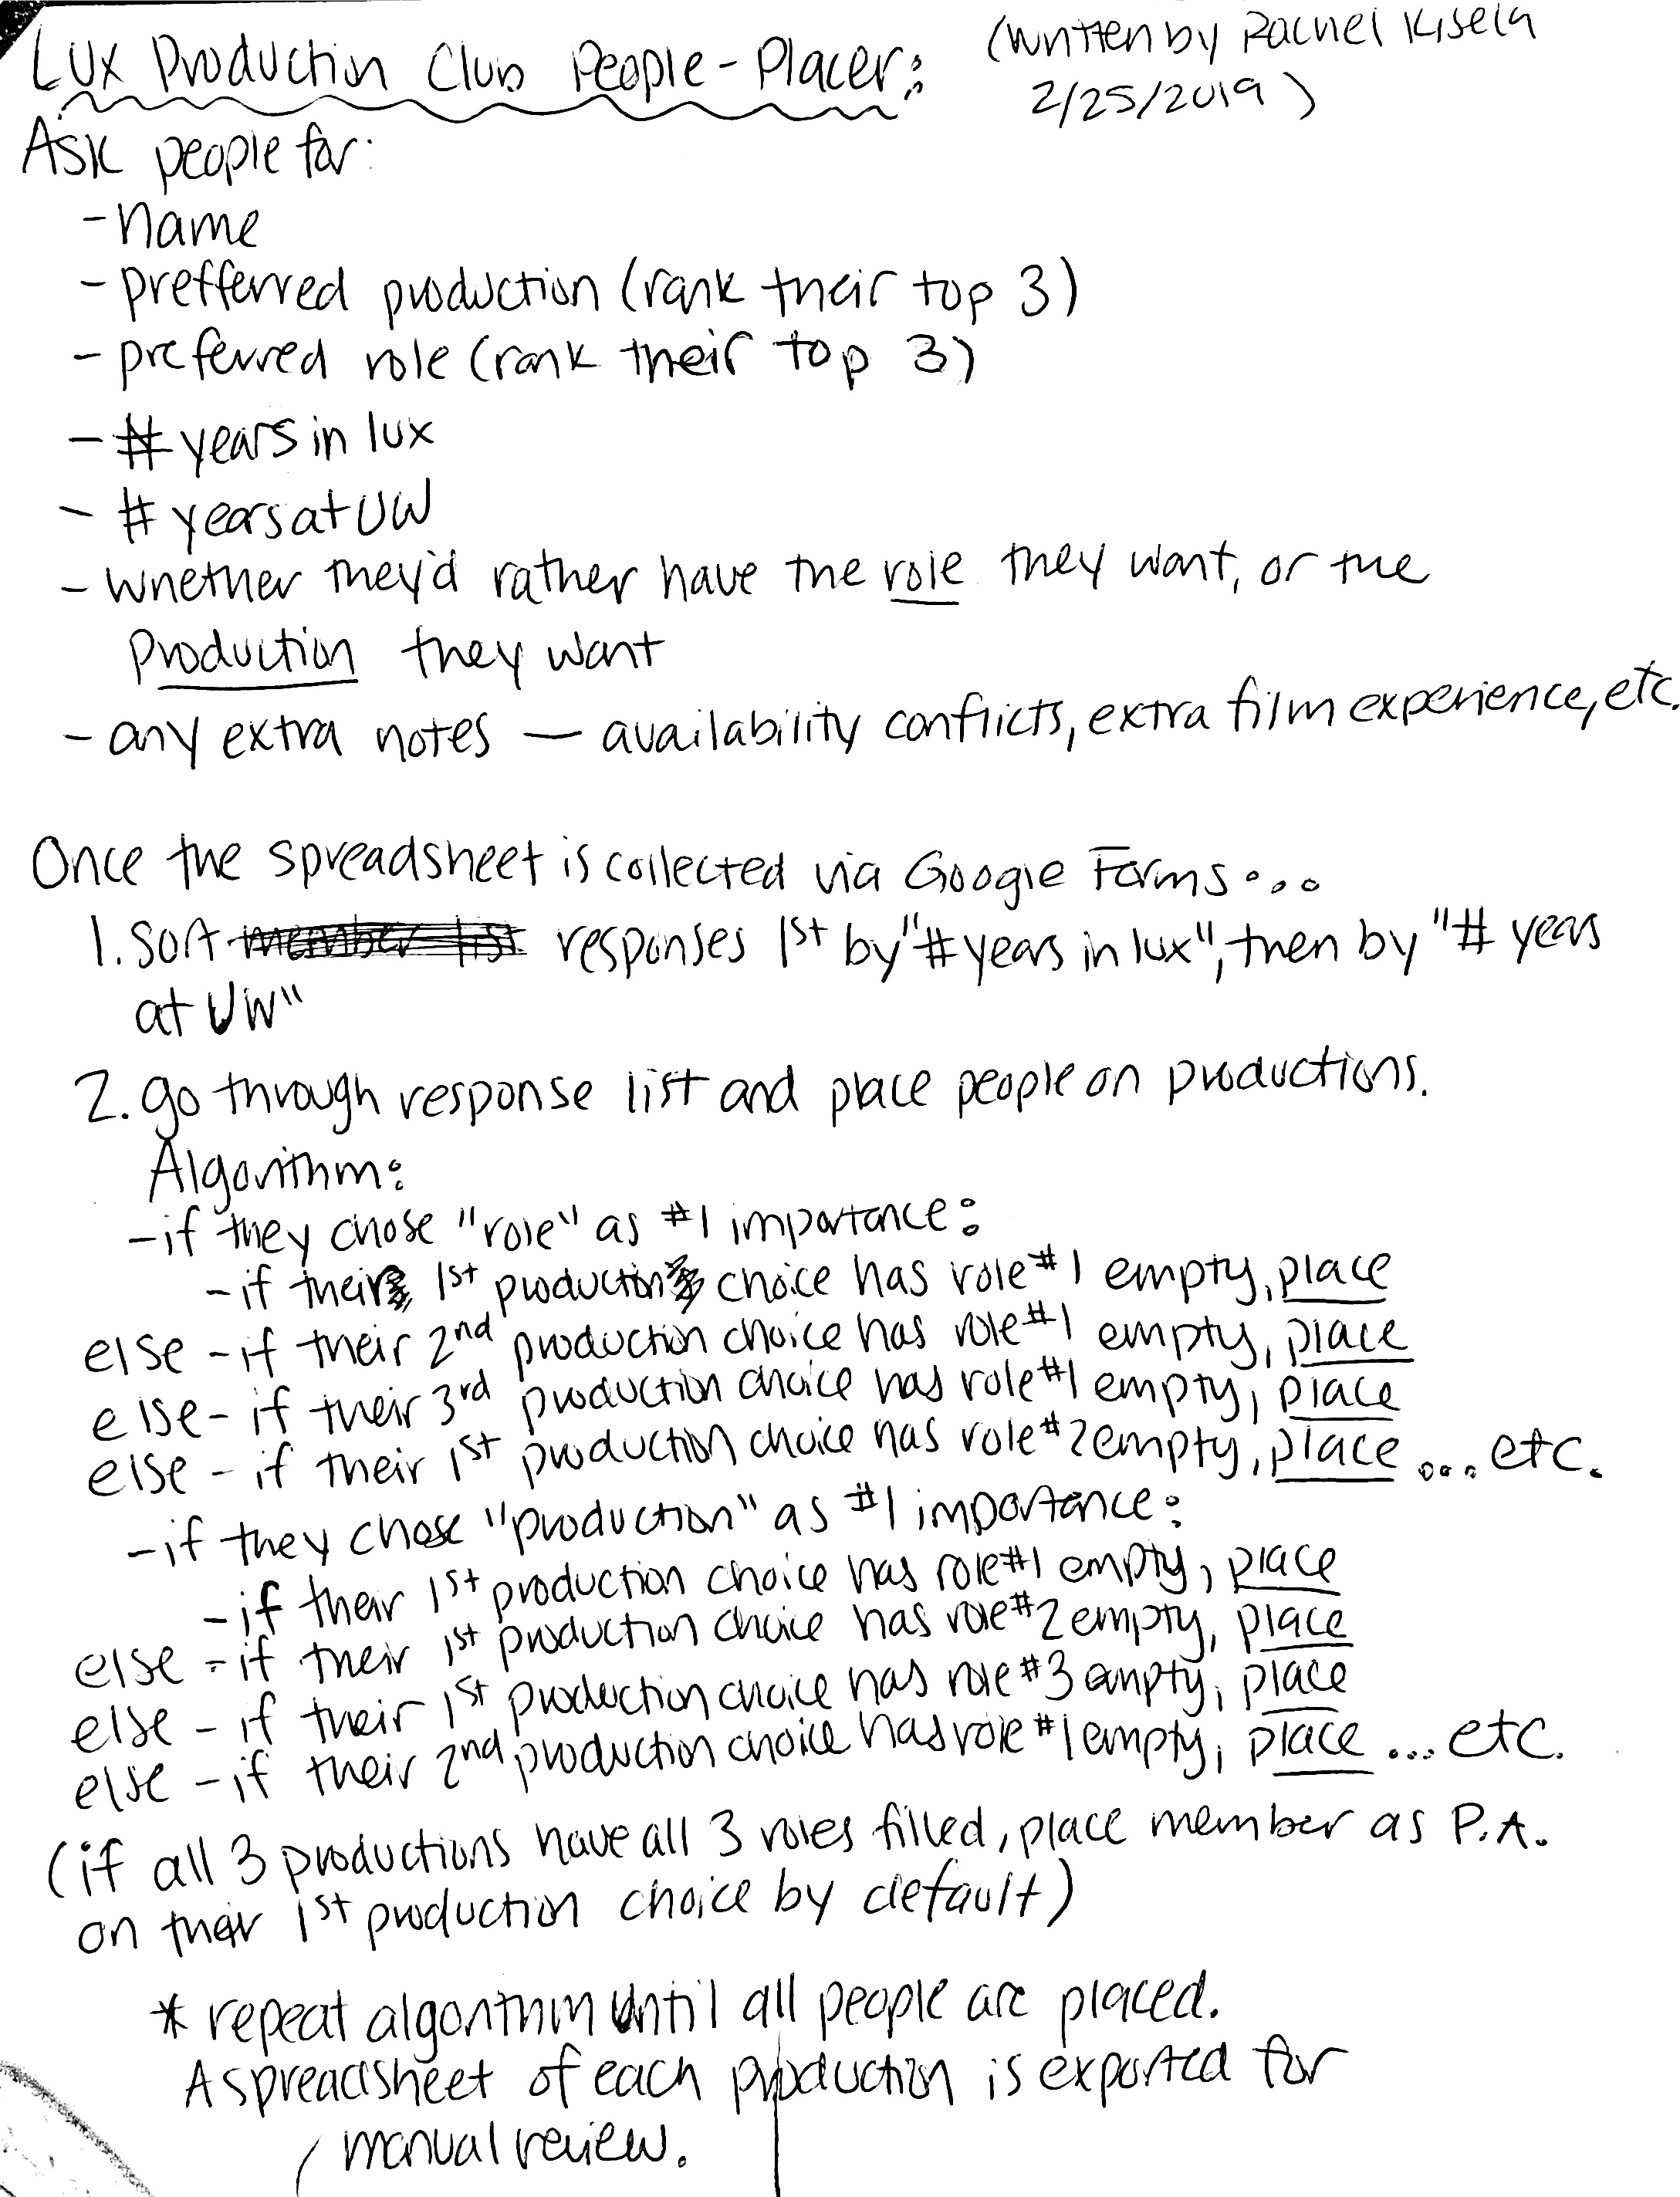 Lux Production Club People-Placer:
(written by Rachel Kisela
2/25/2019)
Ask people for:
- name
- prefferred production (rank their top 3)
- preferred role (rank their top 3)
- # years in lux
- # years at UW
- whether they'd rather have the role they want, or the
production they want
- any extra notes — availability conflicts, extra film experience, etc.
Once the spreadsheet is collected via Google Forms...
1. Sort member list responses 1st by "# years in lux", then by "# years
at UW"
2. go through response list and place people on productions.
Algorithm:
- if they chose "role" as #1 importance:
- if their 1st production choice has role #1 empty, place
else - if their 2nd production choice has role #1 empty, place
else - if their 3rd production choice has role #1 empty, place
else - if their 1st production choice has role #2 empty, place ... etc.
- if they chose "production" as #1 importance:
- if their 1st production choice has role #1 empty, place
else - if their 1st production choice has role #2 empty, place
else - if their 1st production choice has role #3 empty, place
else - if their 2nd production choice has role #1 empty, place ... etc.
(if all 3 productions have all 3 roles filled, place member as P.A.
on their 1st production choice by default)
* repeat algorithm until all people are placed.
A spreadsheet of each production is exported for
manual review.